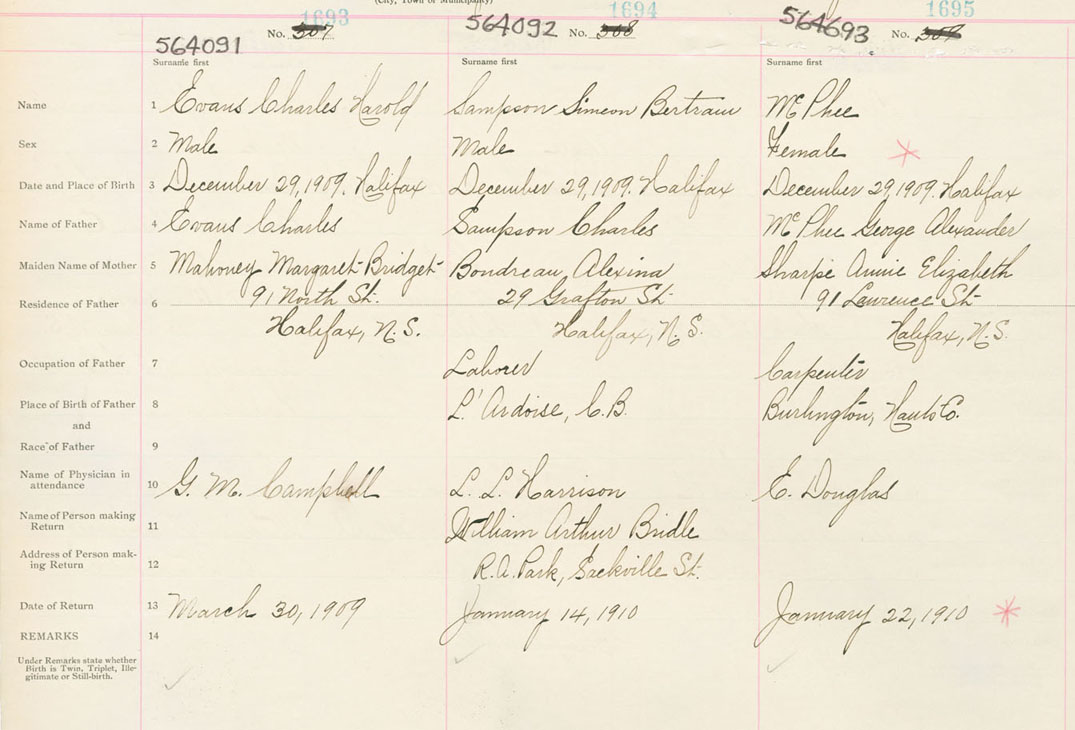 (City, Town or Municipality)
1693 1694 1695
564091 No. 307 564092 No. 308 564693 No.
Surname first Surname first Surname first
Name 1 Evans Charles Harold Sampson Simeon Bertram McPhee
Sex 2 Male Male Female
Date and Place of Birth 3 December 29, 1909. Halifax December 29, 1909. Halifax December 29, 1909. Halifax
Name of Father 4 Evans Charles Sampson Charles McPhee George Alexander
Maiden Name of Mother 5 Mahoney Margaret Bridget Boudreau, Alexina Sharpe Annie Elizabeth
Residence of Father 6 91 North St. 29 Grafton St. 91 Lawrence St.
Halifax, N.S. Halifax, N.S. Halifax, N.S.
Occupation of Father 7 Laborer Carpenter
Place of Birth of Father 8 L'Ardoise, C.B. Burlington, Hants Co.
and
Race of Father 9
Name of Physician in
attendance 10 G. M. Campbell L. L. Harrison E. Douglas
Name of Person making
Return 11 William Arthur Bridle
Address of Person mak-
ing Return 12 R.A. Park, Sackville St.
Date of Return 13 March 30, 1909 January 14, 1910 January 22, 1910
REMARKS 14
Under Remarks state whether
Birth is Twin, Triplet, Ille-
gitimate or Still-birth.